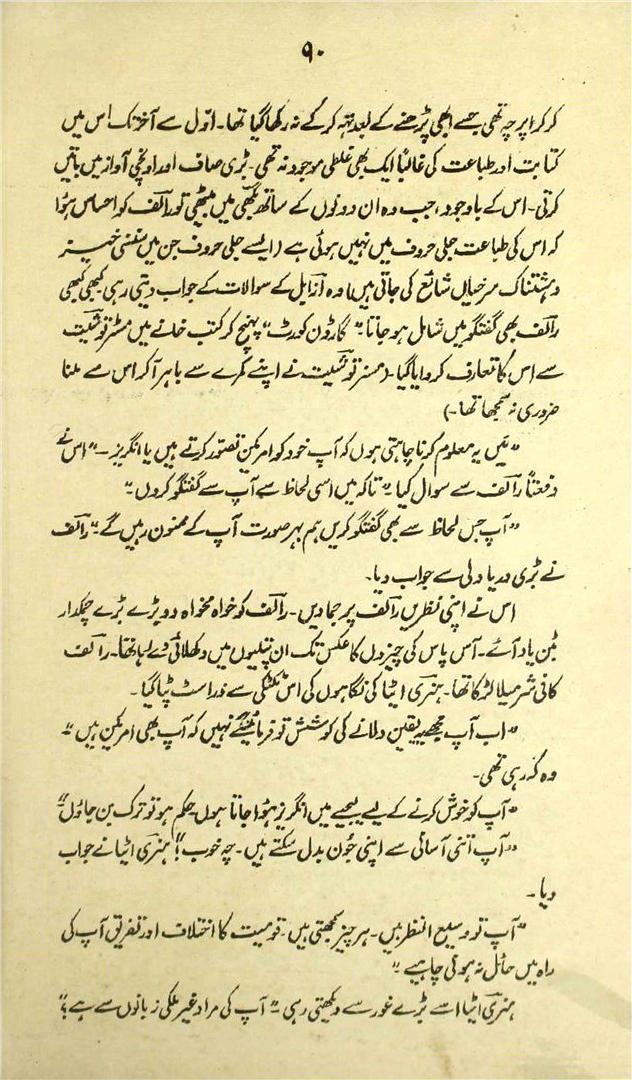 ۹۰
کرکرا پرچہ تھی جسے ابھی پڑھنے کے بعد تہہ کر کے نہ رکھا گیا تھا۔ اوّل سے آخر تک اس میں
کتابت اور طباعت کی غالباً ایک بھی غلطی موجود نہ تھی۔ بڑی صاف اور اونچی آواز میں باتیں
کرتی۔ اس کے باوجود، جب وہ ان دونوں کے ساتھ بگھی میں بیٹھی تو رالف کو احساس ہُوا
کہ اس کی طباعت جلی حروف میں نہیں ہوئی ہے (ایسے جلی حروف جن میں سنسنی خیز
دہشتناک سرخیاں شائع کی جاتی ہیں) وہ ازابل کے سوالات کے جواب دیتی رہی کبھی کبھی
رالف بھی گفتگو میں شامل ہو جاتا۔ "گارڈون کورٹ" پہنچ کر کتب خانے میں مسٹر توشیت
سے اس کا تعارف کروایا گیا۔ (مسز توشیت نے اپنے کمرے سے باہر آ کر اس سے ملنا
ضروری نہ سمجھا تھا۔)
"میں یہ معلوم کرنا چاہتی ہوں کہ آپ خود کو امریکن تصوّر کرتے ہیں یا انگریز۔" اس نے
دفعتاً رالف سے سوال کیا "تاکہ میں اسی لحاظ سے آپ سے گفتگو کروں۔"
"آپ جس لحاظ سے بھی گفتگو کریں ہم بہر صورت آپ کے ممنون رہیں گے۔" رالف
نے بڑی دریا دلی سے جواب دیا۔
اس نے اپنی نظریں رالف پر جما دیں۔ رالف کو خواہ مخواہ دو بڑے بڑے چمکدار
بٹن یاد آئے۔ آس پاس کی چیزوں کا عکس تک ان پتلیوں میں دکھلائی دے رہا تھا۔ رالف
کافی شرمیلا لڑکا تھا۔ ہنری اٹیا کی نگاہوں کی اس ٹکٹکی سے ذرا سٹ پٹا گیا۔
"اب آپ مجھے یہ یقین دلانے کی کوشش تو فرمائینگے نہیں کہ آپ بھی امریکن ہیں"
وہ کہہ رہی تھی۔
"آپ کو خوش کرنے کے لیے لیجیے میں انگریز ہُوا جاتا ہوں۔ حکم ہو تو ترک بن جاؤں"
"آپ اتنی آسانی سے اپنی جُون بدل سکتے ہیں۔ چہ خوب!" ہنری اٹیا نے جواب
دیا۔
"آپ تو وسیع النظر ہیں۔ ہر چیز سمجھتی ہیں۔ قومیت کا اختلاف اور تفریق آپ کی
راہ میں حائل نہ ہونی چاہیے۔"
ہنری اٹیا اسے بڑے غور سے دیکھتی رہی۔ "آپ کی مراد غیر ملکی زبانوں سے ہے؟"